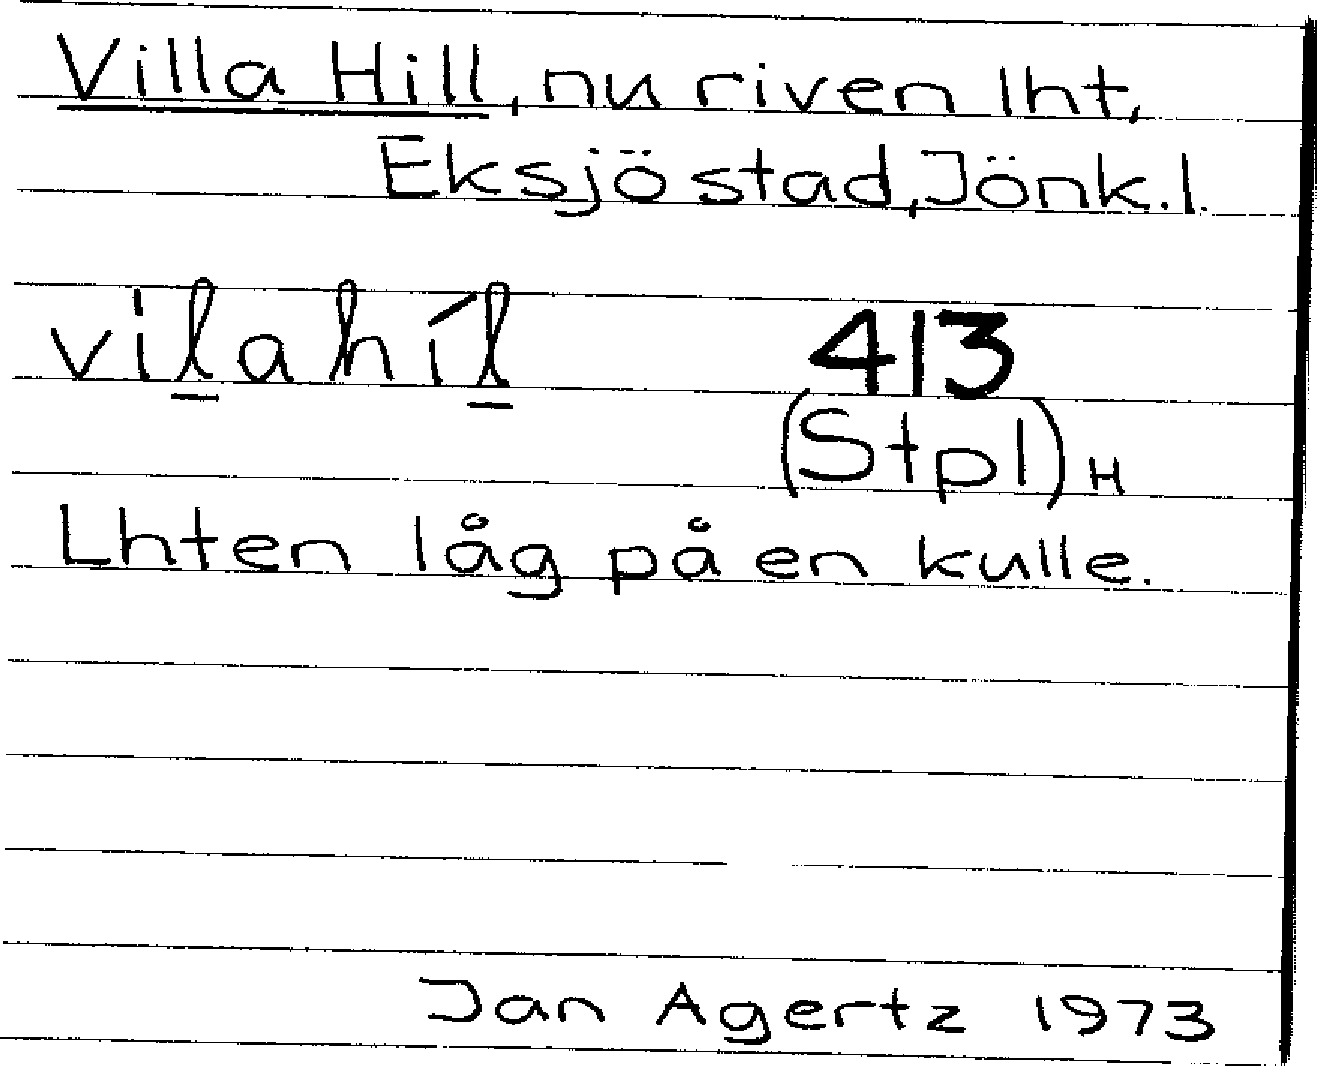 Villa Hill, nu riven lht,
Eksjö stad, Jönk. l.
vilahíl 413
(Stpl) H
Lhten låg på en kulle.
Jan Agertz 1973